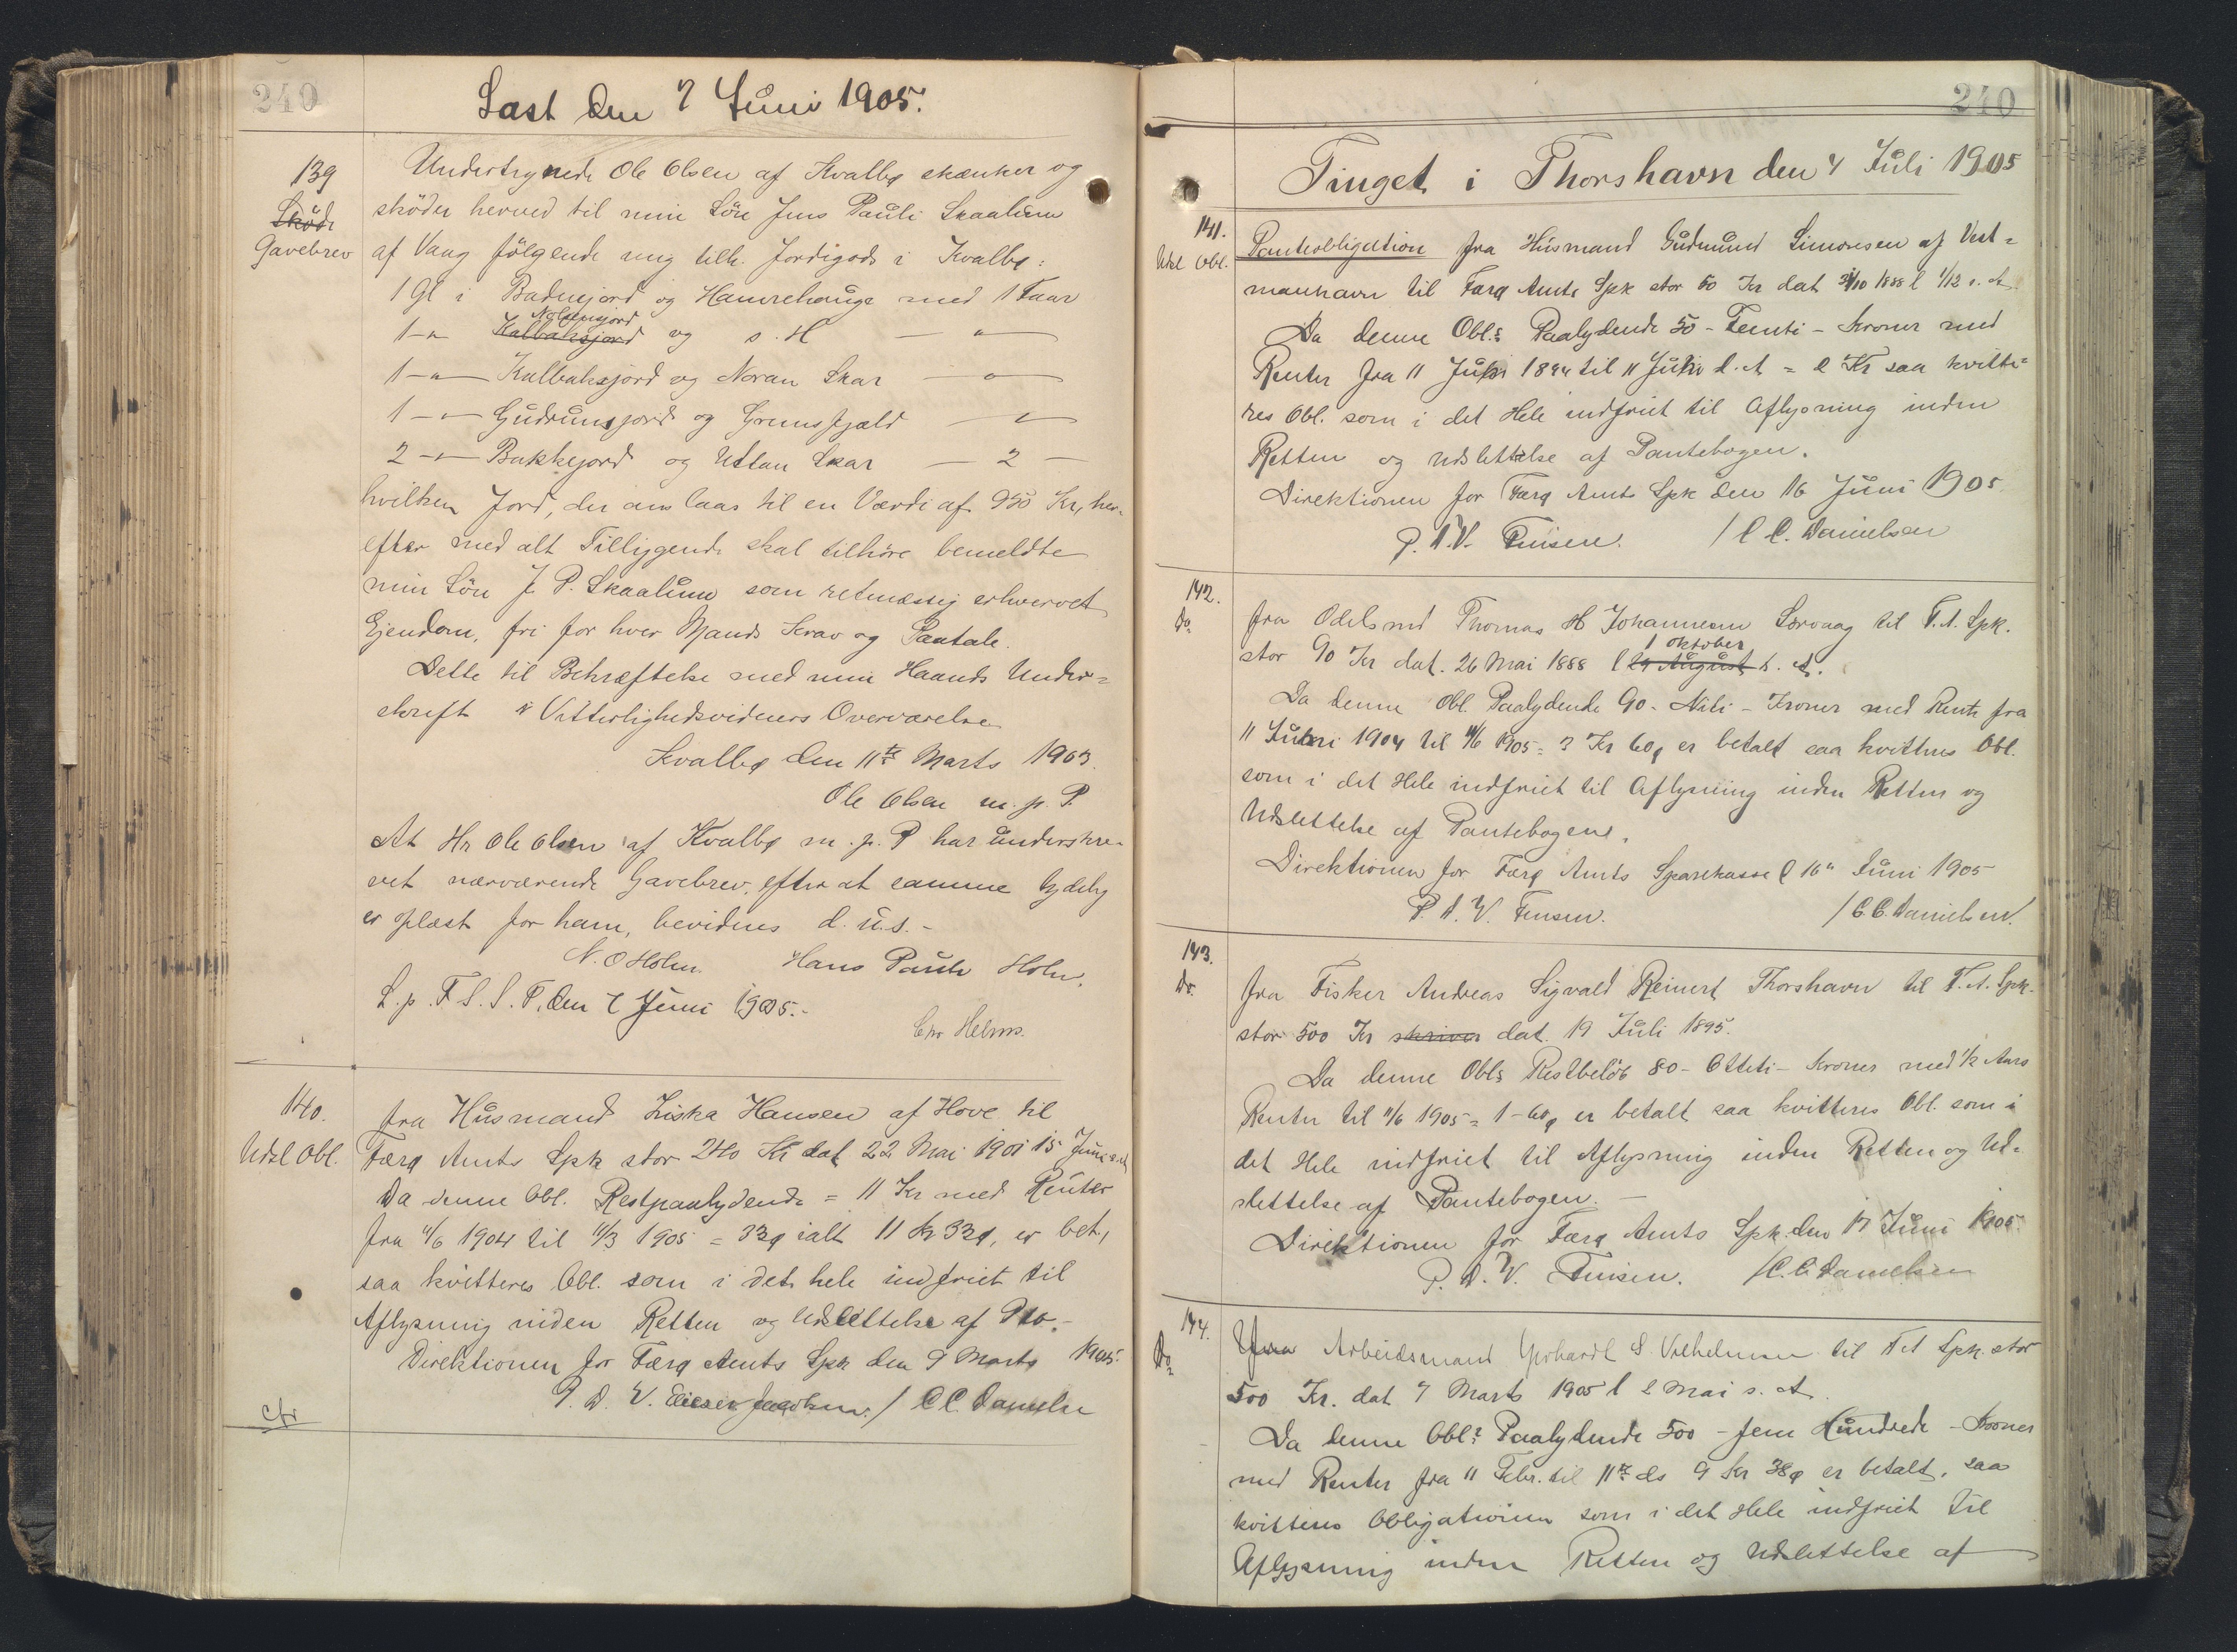 240
Læst den 7 Juni 1905.
139
Skøde
Gavebrev
Undertegnede Ole Olsen af Kvalbø skænker og
skøder herved til min Søn Jens Pauli Skaalum
af Vaag følgende mig tilh. Jordigods i Kvalbø:
1 Gl i Badnejord og Hamrehauge med 1 Faar
Nolsenjord
1 -"- Kalbaksjord og s. H — " —
1 -"- Kalbaksjord og Noran Skar — " —
1 -"- Gudrunsjord og Grimsfjald — " —
2 -"- Bakkejord og Uttan Skar — 2 —
hvilken Jord, der anslaas til en Værdi af 950 Kr, her-
efter med alt Tilliggende skal tilhøre bemeldte
min Søn J. P. Skaalum som retmæssig erhvervet
Ejendom, fri for hver Mands Krav og Paatale.
Dette til Bekræftelse med min Haands Under=
skrift i Vitterlighedsvidners Overværelse
Kvalbø den 11te Marts 1903.
Ole Olsen m. p. P.
At Hr Ole Olsen af Kvalbø m. p. P har underskre-
vet nærværende Gavebrev, efter at samme tydelig
er oplæst for ham, bevidnes d. u. s. -
N. O Holm. Hans Pauli Holm.
L. p. F. S. S. T. den 7 Juni 1905. -
Chr Helms.
140.
Udsl Obl.
fra Husmand Ziska Hansen af Hove til
Færø Amts Spk stor 240 Kr dat 22 Mai 1901 15 Juni s. A
Da denne Obl. Restpaalydende = 11 Kr med Renter
fra 11/6 1904 til 11/3 1905 = 33ø ialt 11 Kr 33ø, er bet,
saa kvitteres Obl. som i det hele indfriet til
Aflysning inden Retten og Udslettelse af Pto. -
Direktionen for Færø Amts Spk den 9 Marts 1905.
P. D. V. / C C. Danielse
cfr
240
Tinget i Thorshavn den 4 Juli 1905
141.
Udsl Obl.
Panteobligation fra Husmand Gudmund Simonsen af Vest=
manhavn til Færø Amts Spk stor 50 Kr dat 31/10 1888 l 1/12 s. A.
Da denne Obl.s Paalydende 50 - Femti - Kroner med
Renter fra 11 Juni 1904 til 11 Juni d. A = 2 Kr saa kvitte=
res Obl. som i det Hele indfriet til Aflysning inden
Retten og Udslettelse af Pantebogen.
Direktionen for Færø Amts Spk den 16 Juni 1905
P. D. V. Finsen. / C C. Danielsen
142.
Do
fra Odelsmd Thomas H Johannesen Sørvaag til F. A. Spk.
1 Oktober
stor 90 Kr dat. 26 Mai 1888 l 29 August s. A.
Da denne Obl. Paalydende 90 - Niti - Kroner med Rente fra
11 Juni 1904 til 11/6 1905 = 3 Kr 60ø er betalt saa kvitteres Obl.
som i det Hele indfriet til Aflysning inden Retten og
Udslettelse af Pantebogen.
Direktionen for Færø Amts Sparekasse d 16" Juni 1905
P. D. V. Finsen. / C C. Danielsen.
143.
Do.
fra Fisker Andreas Sigvald Reinert Thorshavn til F. A. Spk.
stor 500 Kr skriver dat. 19 Juli 1895.
Da denne Obls Restbeløb 80 - Otteti - Kroner med 1/2 Aars
Renter til 11/6 1905 = 1 - 60ø er betalt saa kvitteres Obl. som i
det Hele indfriet til Aflysning inden Retten og Ud-
slettelse af Pantebogen. -
Direktionen for Færø Amts Spk den 17 Juni 1905.
P. D. V. Finsen. / C. C. Danielsen
144.
Do
fra Arbeidsmand Gerhardt S. Vilhelmsen til F A Spk. stor
500 Kr. dat 7 Marts 1905 l 2 Mai s. A.
Da denne Obl.s Paalydende 500 - fem Hundrede - Kroner
med Renter fra 11 Febr. til 11te ds 9 Kr 38ø er betalt, saa
kvitteres Obligationen som i det Hele indfriet til
Aflysning inden Retten og Udslettelse af